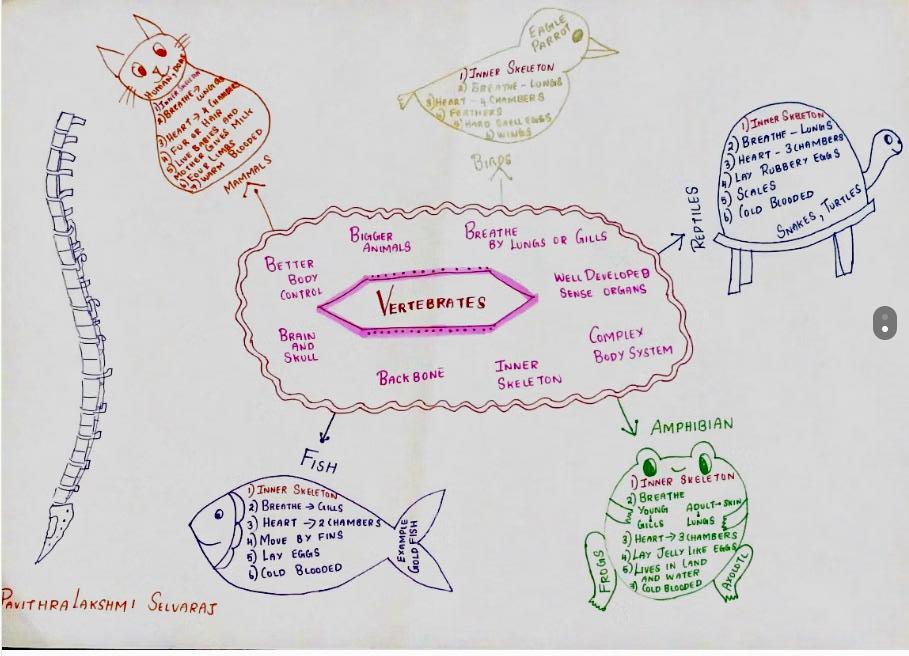 HUMAN, DOG
1) INNER SKELETON
2) BREATHE → LUNGS
3) HEART → 4 CHAMBERS
4) FUR OR HAIR
5) LIVE BABIES AND
MOTHER GIVES MILK
6) FOUR LIMBS
7) WARM BLOODED
MAMMALS
EAGLE
PARROT
1) INNER SKELETON
2) BREATHE - LUNGS
3) HEART - 4 CHAMBERS
4) FEATHERS
5) HARD SHELL EGGS
6) WINGS
BIRDS
REPTILES
1) INNER SKELETON
2) BREATHE - LUNGS
3) HEART - 3 CHAMBERS
4) LAY RUBBERY EGGS
5) SCALES
6) COLD BLOODED
SNAKES, TURTLES
VERTEBRATES
BIGGER
ANIMALS
BREATHE
BY LUNGS OR GILLS
BETTER
BODY
CONTROL
WELL DEVELOPED
SENSE ORGANS
BRAIN
AND
SKULL
COMPLEX
BODY SYSTEM
BACKBONE
INNER
SKELETON
FISH
1) INNER SKELETON
2) BREATHE → GILLS
3) HEART → 2 CHAMBERS
4) MOVE BY FINS
5) LAY EGGS
6) COLD BLOODED
EXAMPLE
GOLD FISH
AMPHIBIAN
1) INNER SKELETON
2) BREATHE
YOUNG ADULT → SKIN
GILLS LUNGS
3) HEART → 3 CHAMBERS
4) LAY JELLY LIKE EGGS
5) LIVES IN LAND
AND WATER
COLD BLOODED
FROGS
AXOLOTL
PAVITHRA LAKSHMI SELVARAJ